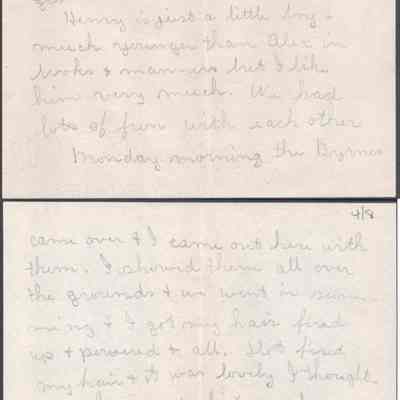 Henry is just a little boy &
much younger than Alex in
looks & manners but I like
him very much. We had
lots of fun with each other
Monday morning the Byrnes
4/8
came over & I came out here with
them. I showed them all over
the grounds & we went in swim-
ming & I got my hair fixed
up & powered & all. Dot fixed
my hair & it was lovely I thought.